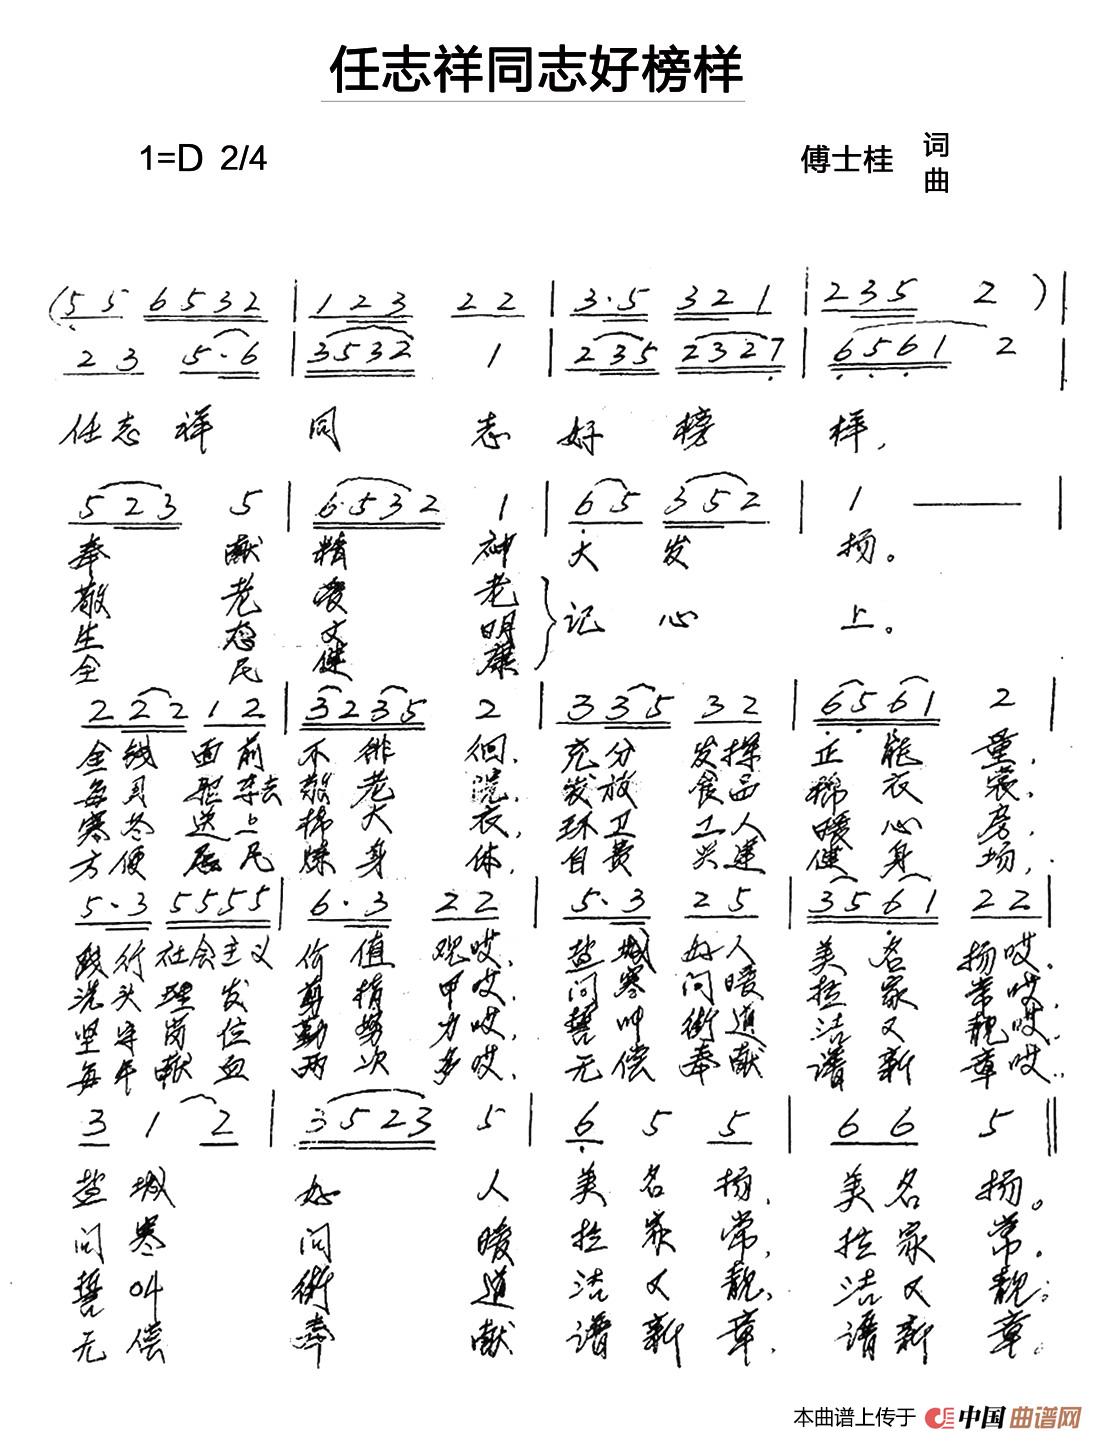 任志祥同志好榜样
1=D 2/4
傅士桂 词
曲
(5 5 6 5 3 2 | 1 2 3 2 2 | 3·5 3 2 1 | 2 3 5 2 ) |
2 3 5·6 | 3 5 3 2 1 | 2 3 5 2 3 2 7 | 6 5 6 1 2 |
任志祥 同 志 好 榜 样,
5 2 3 5 | 6·5 3 2 1 | 6 5 3 5 2 | 1 — |
奉 献 精 神 大 发 扬。
敬 老 爱 老
生 态 文 明 记 心 上。
全 民 健 康
2 2 2 1 2 | 3 2 3 5 2 | 3 3 5 3 2 | 6 5 6 1 2 |
金钱 面前 不 徘 徊, 充分 发挥 正 能 量,
每月 都去 敬 老 院, 发放 食品 棉 衣 裳,
寒冬 送上 棉 大 衣, 环卫 工人 暖 心 房,
方便 居民 炼 身 体, 自费 兴建 健 身 场,
5·3 5 5 5 5 | 6·3 2 2 | 5·3 2 5 | 3 5 6 1 2 2 |
践行社会主义 价 值 观哎, 盐城 好人 美 名 扬哎,
洗头 理 发 剪 指 甲哎, 问寒 问暖 拉 家 常哎,
坚守 岗 位 勤 努 力哎, 誓叫 街道 洁 又 靓哎,
每年 献 血 两 次 多哎, 无偿 奉献 谱 新 章哎,
3 1 2 | 3 5 2 3 5 | 6 5 5 | 6 6 5 ‖
盐城 好 人 美 名 扬, 美名 扬。
问寒 问 暖 拉 家 常, 拉家 常。
誓叫 街 道 洁 又 靓, 洁又 靓。
无偿 奉 献 谱 新 章, 谱新 章。
本曲谱上传于 中国曲谱网